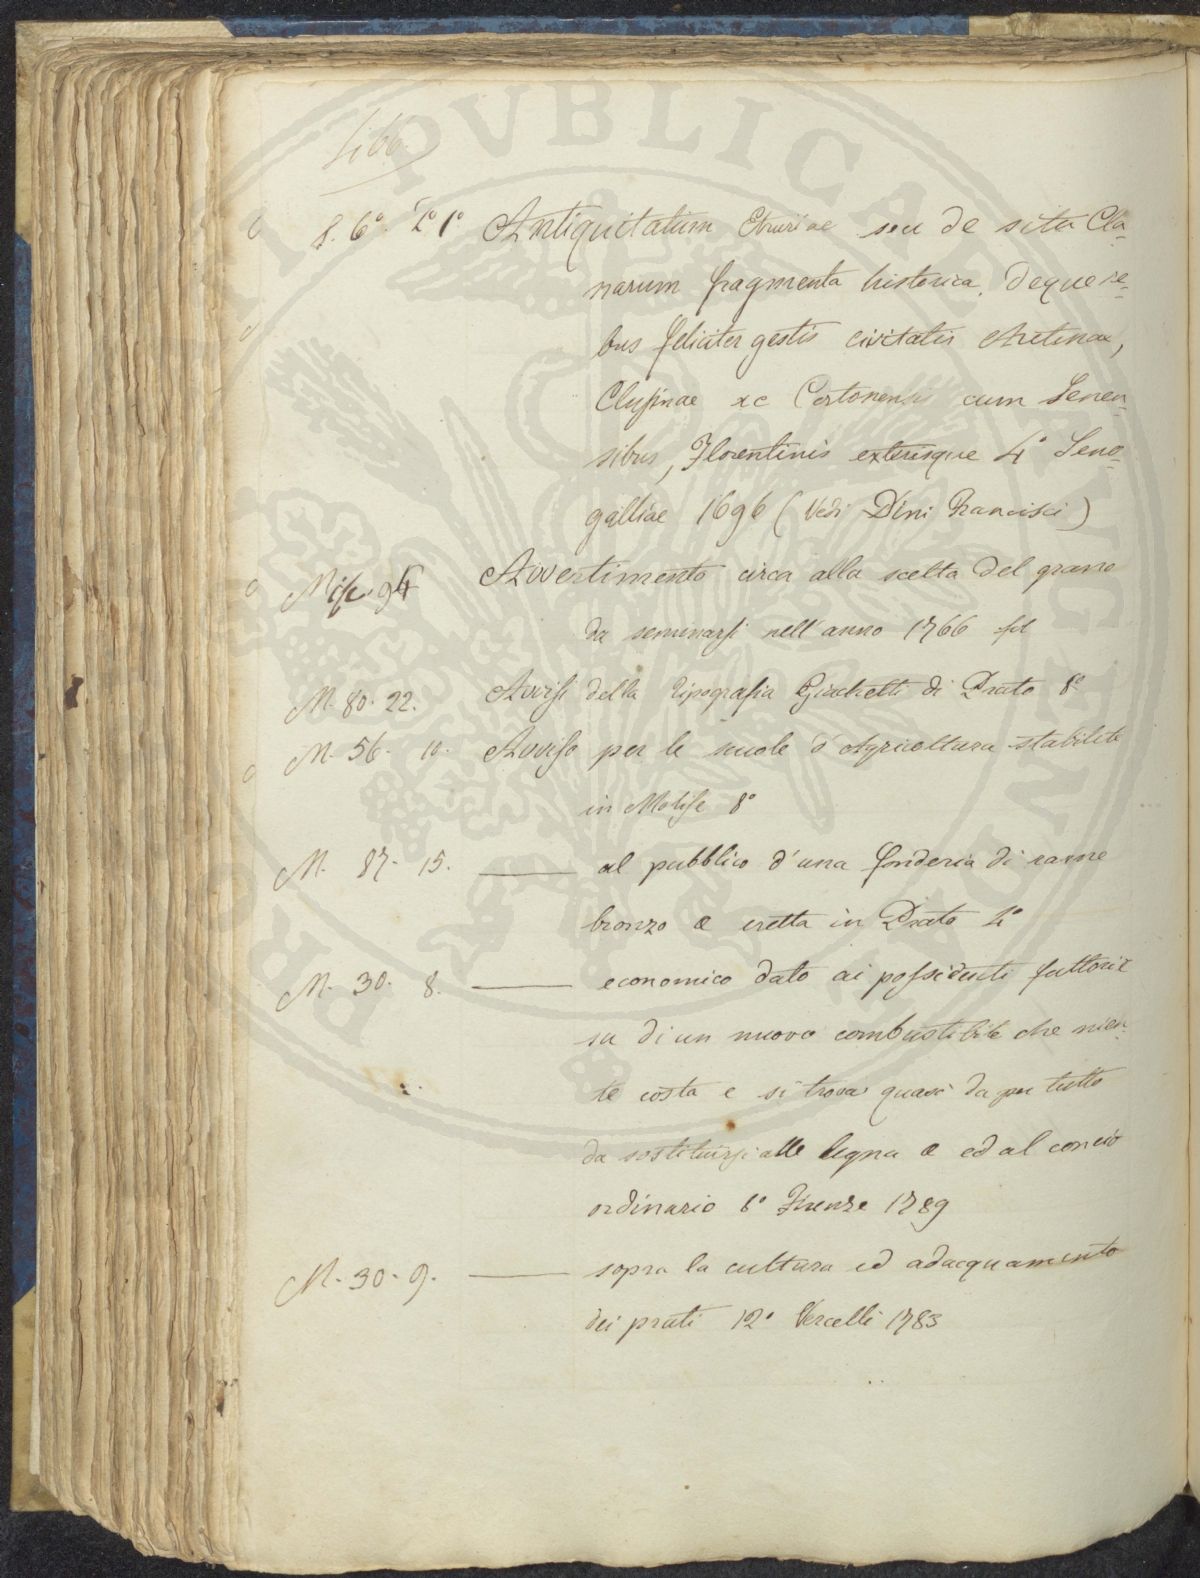 466.
8. 6°. 2° 1° Antiquitatum Etruriae seu de situ Cla-
narum fragmenta historica, deque re-
bus feliciter gestis civitatis Aretinae,
Clusinae ac Cortonensis cum Senen-
sibus, Florentinis exterisque 4° Seno-
galliae 1696 (Vedi Dini Francisci)
Misc. 94 Avvertimento circa alla scelta del grano
da seminarsi nell'anno 1766 fol
M. 80. 22. Avvisi della tipografia Giachetti di Prato 8°
M. 56. 10. Avviso per le scuole d'Agricoltura stabilite
in Molise 8°
M. 87. 15. —— al pubblico d'una fonderia di rame
bronzo & eretta in Prato 4°
M. 30. 8. —— economico dato ai possidenti fattorie
su di un nuovo combustibile che nien-
te costa e si trova quasi da per tutto
da sostituirsi alle legna & ed al concio
ordinario 8° Firenze 1789
M. 30. 9. —— sopra la cultura ed adacquamento
dei prati 12° Vercelli 1783
PUBLICAE